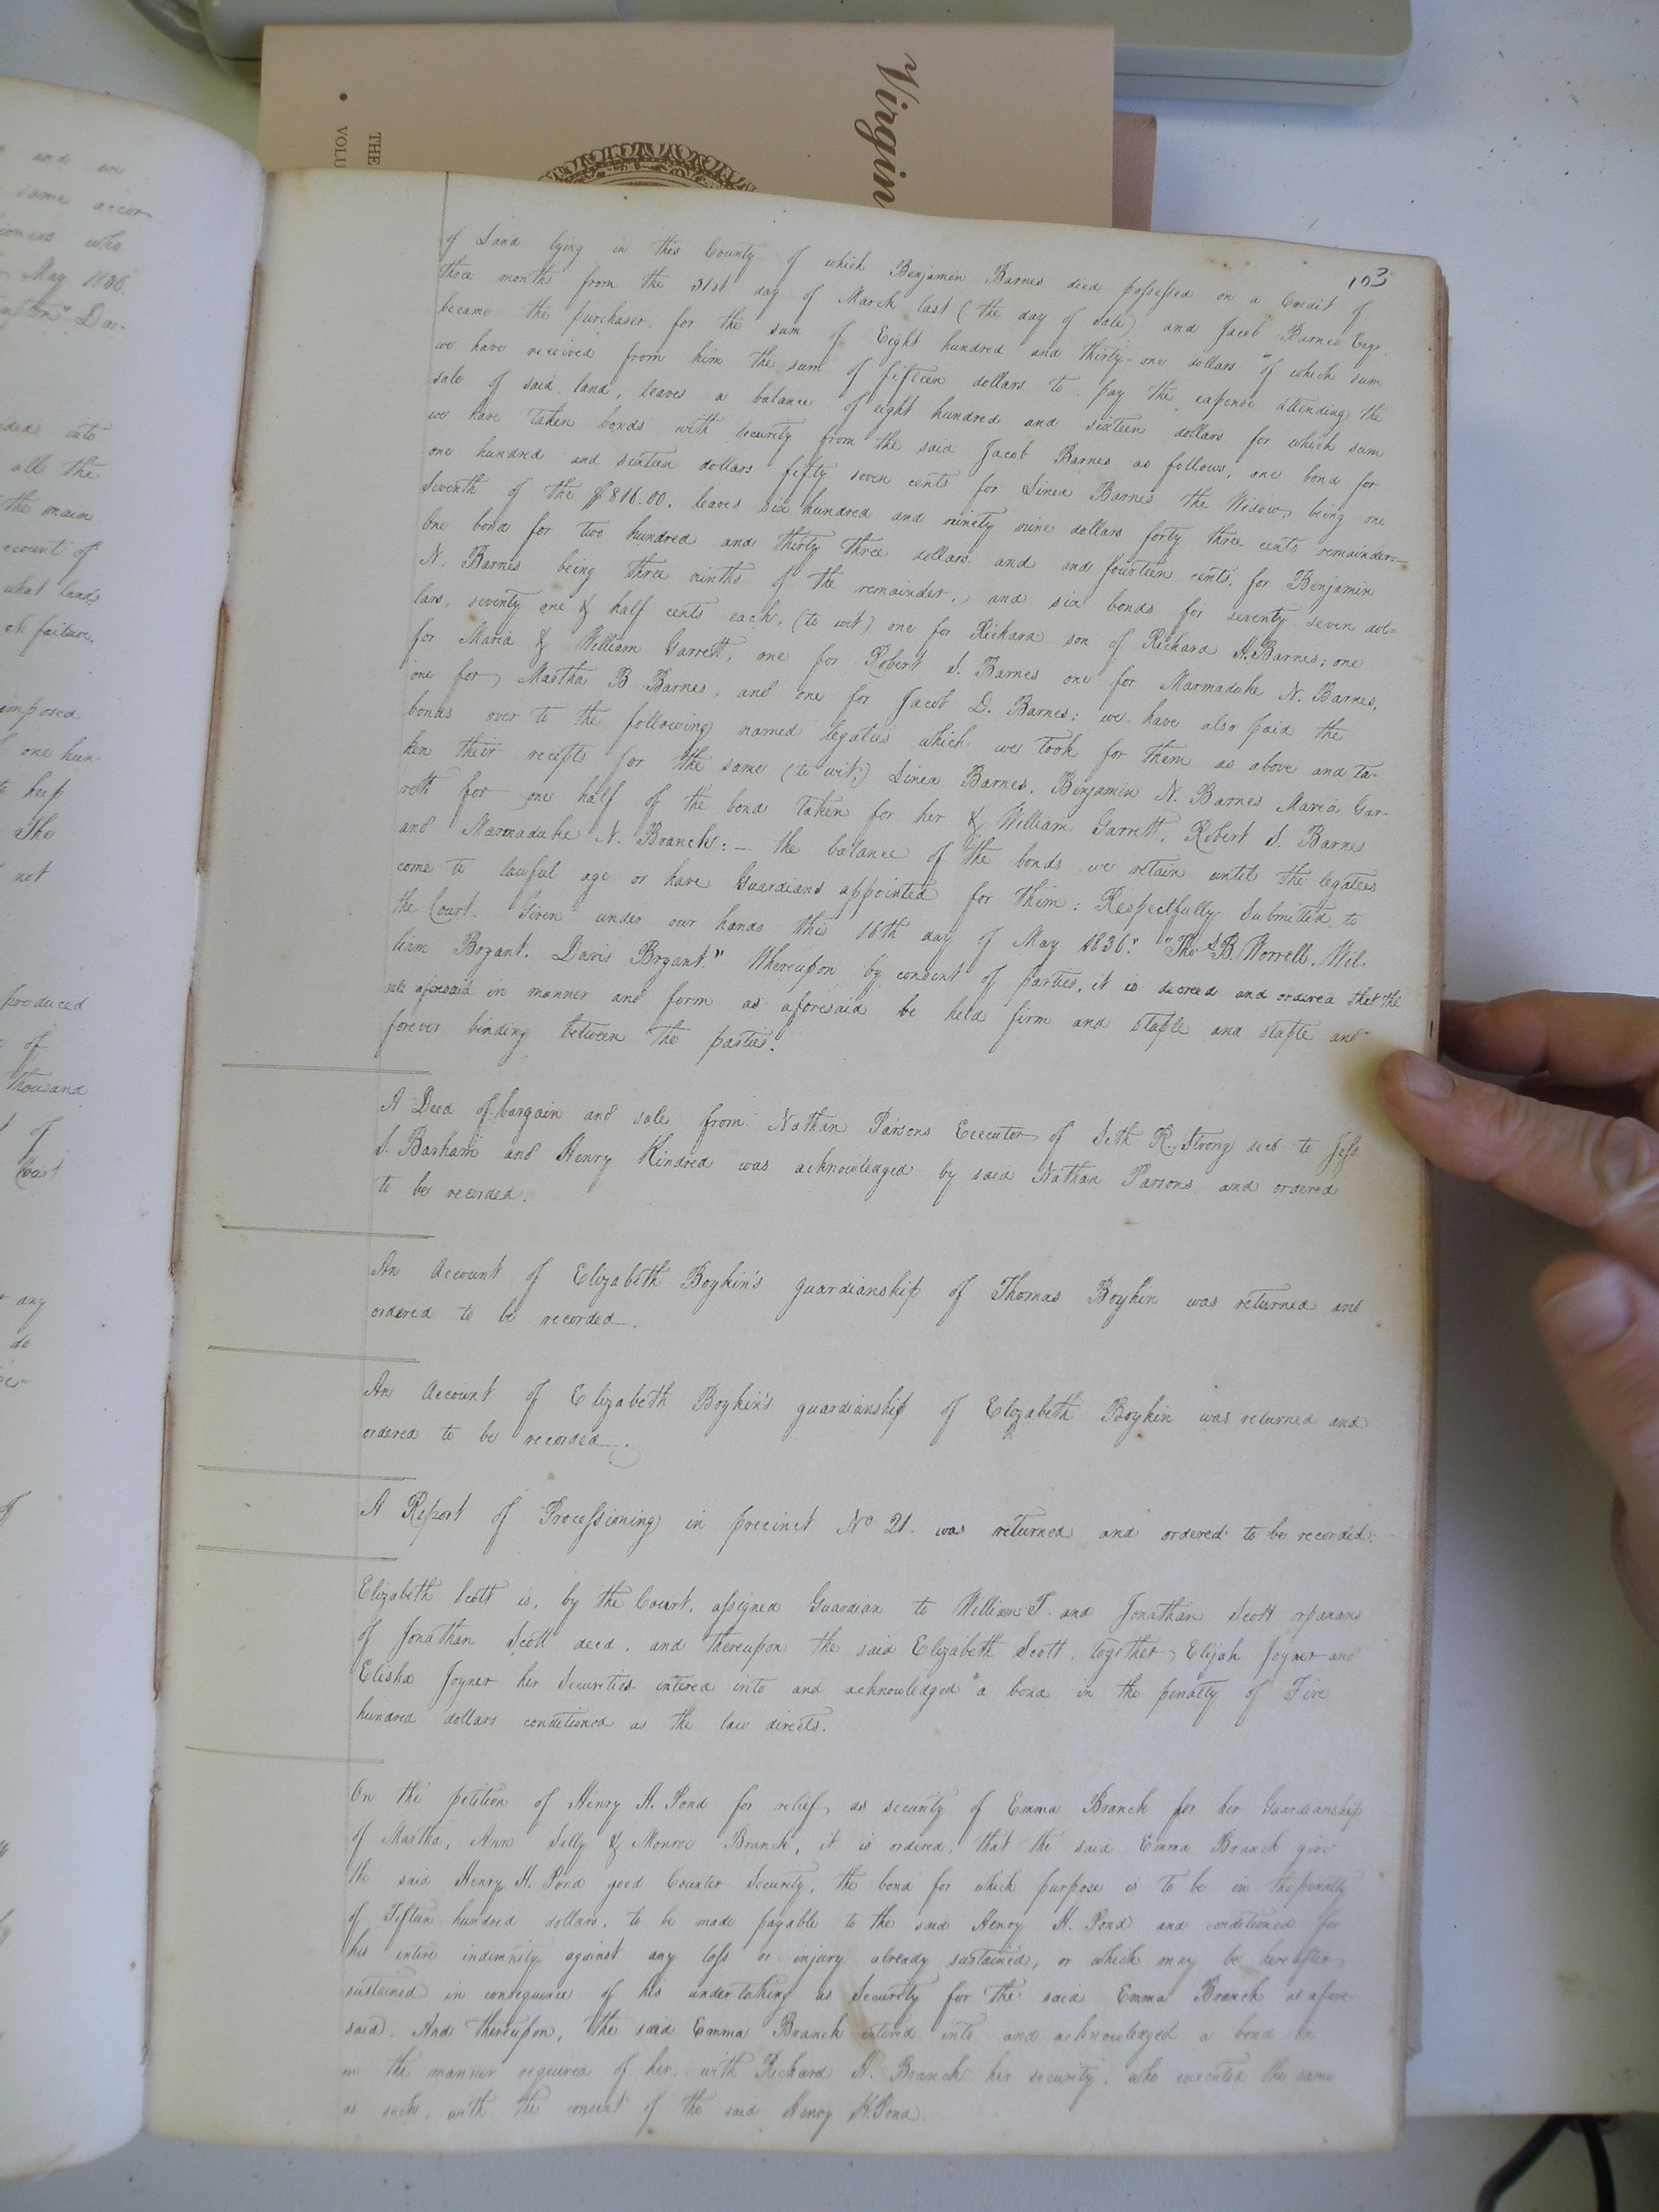 Virgin
THE
VOLU
103
of Land lying in this County of which Benjamin Barnes died possessed on a Credit of
three months from the 31st day of March last (the day of sale) and Jacob Barnes
became the purchaser, for the sum of Eight hundred and thirty-one dollars of which sum
we have received from him the sum of fifteen dollars to pay the expense attending the
sale of said land, leaves a balance of eight hundred and sixteen dollars for which sum
we have taken bonds with security from the said Jacob Barnes as follows, one bond for
one hundred and sixteen dollars fifty seven cents for Sinea Barnes the Widow, being one
seventh of the $816.00. leaves six hundred and ninety nine dollars forty three cents remainder.
One bond for two hundred and thirty three dollars and and fourteen cents, for Benjamin
N. Barnes being three ninths of the remainder, and six bonds for seventy seven dol=
lars, seventy one & half cents each, (to wit) one for Richard son of Richard H. Barnes; one
for Maria & William Garrett, one for Robert S. Barnes one for Marmaduke N. Barnes,
one for Martha B Barnes, and one for Jacob D. Barnes; we have also paid the
bonds over to the following named legatees which we took for them as above and ta-
ken their receipts for the same (to wit;) Sinea Barnes, Benjamin N. Barnes Maria Gar-
rett for one half of the bond taken for her & William Garrett, Robert S. Barnes
and Marmaduke N. Branch: — the balance of the bonds we retain until the legatees
come to lawful age or have Guardians appointed for them: Respectfully Submitted to
the Court. Given under our hands this 16th day of May 1836." "Thos B. Worrell. Wil-
liam Bryant. Davis Bryant." Whereupon by consent of parties, it is decreed and ordered that the
sale aforesaid in manner and form as aforesaid be held firm and stable and stable and
forever binding between the parties.
A Deed of bargain and sale from Nathan Parsons Executor of Seth R. Strong decd to Jess
S. Barham and Henry Kindred was acknowledged by said Nathan Parsons and ordered
to be recorded.
An Account of Elizabeth Boykin's guardianship of Thomas Boykin was returned and
ordered to be recorded.
An Account of Elizabeth Boykin's guardianship of Elizabeth Boykin was returned and
ordered to be recorded.
A Report of Processioning in precinct No 21. was returned and ordered to be recorded.
Elizabeth Scott is, by the Court, assigned Guardian to William T. and Jonathan Scott orphans
of Jonathan Scott decd. and thereupon the said Elizabeth Scott, together Elijah Joyner and
Elisha Joyner her Securities entered into and acknowledged a bond in the penalty of Five
hundred dollars conditioned as the law directs.
On the petition of Henry H. Pond for relief, as security of Emma Branch for her Guardianship
of Martha, Ann Sally & Monroe Branch, it is ordered, that the said Emma Branch give
the said Henry H. Pond good Counter Security, the bond for which purpose is to be in the penalty
of Fifteen hundred dollars, to be made payable to the said Henry H. Pond and conditioned for
his entire indemnity against any loss or injury already sustained, or which may be hereafter
sustained in consequence of his undertaking as Security for the said Emma Branch as afore-
said. And thereupon, the said Emma Branch entered into and acknowledged a bond in
in the manner required of her, with Richard H. Branch her security, who executed the same
as such, with the consent of the said Henry H. Pond.